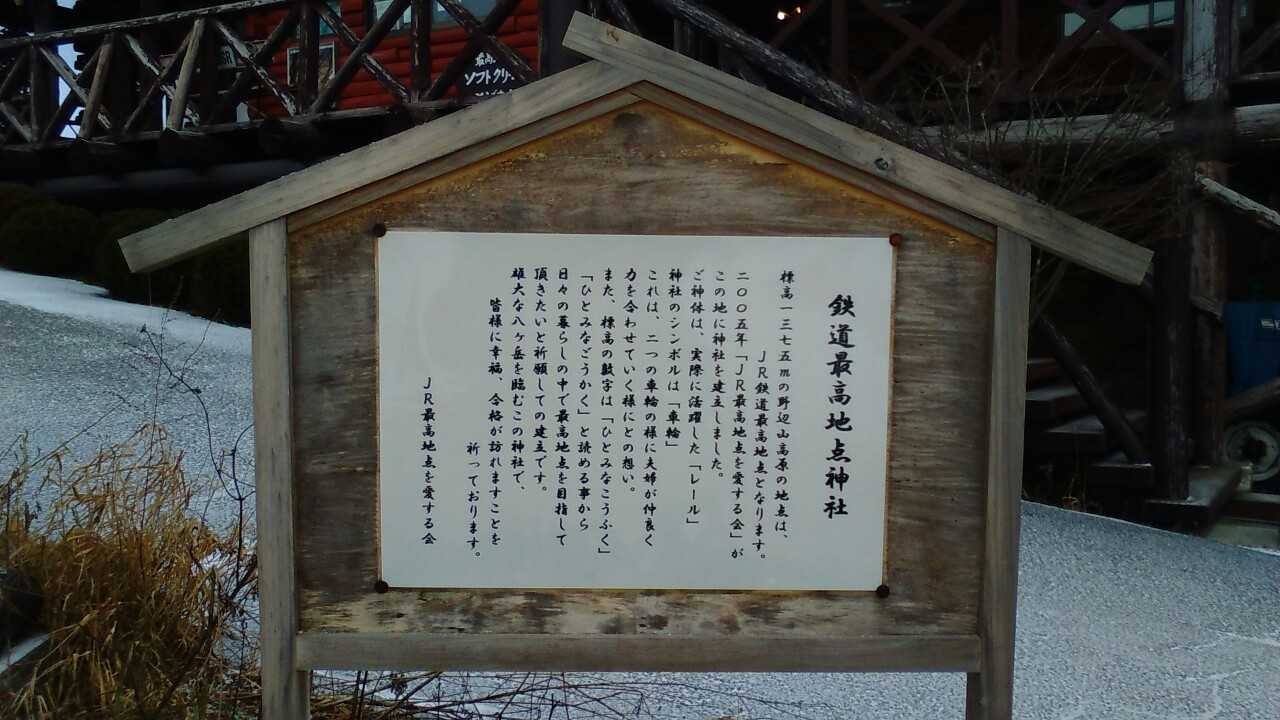 鉄道最高地点神社
標高一三七五mの野辺山高原の地点は、
JR鉄道最高地点となります。
二〇〇五年「JR最高地点を愛する会」が
この地に神社を建立しました。
ご神体は、実際に活躍した「レール」
神社のシンボルは「車輪」
これは、二つの車輪の様に夫婦が仲良く
力を合わせていく様にとの想い。
また、標高の数字は「ひとみなこうふく」
「ひとみなごうかく」と読める事から
日々の暮らしの中で最高地点を目指して
頂きたいと祈願しての建立です。
雄大な八ヶ岳を臨むこの神社で、
皆様に幸福、合格が訪れますことを
祈っております。
JR最高地点を愛する会
最高
ソフトクリー